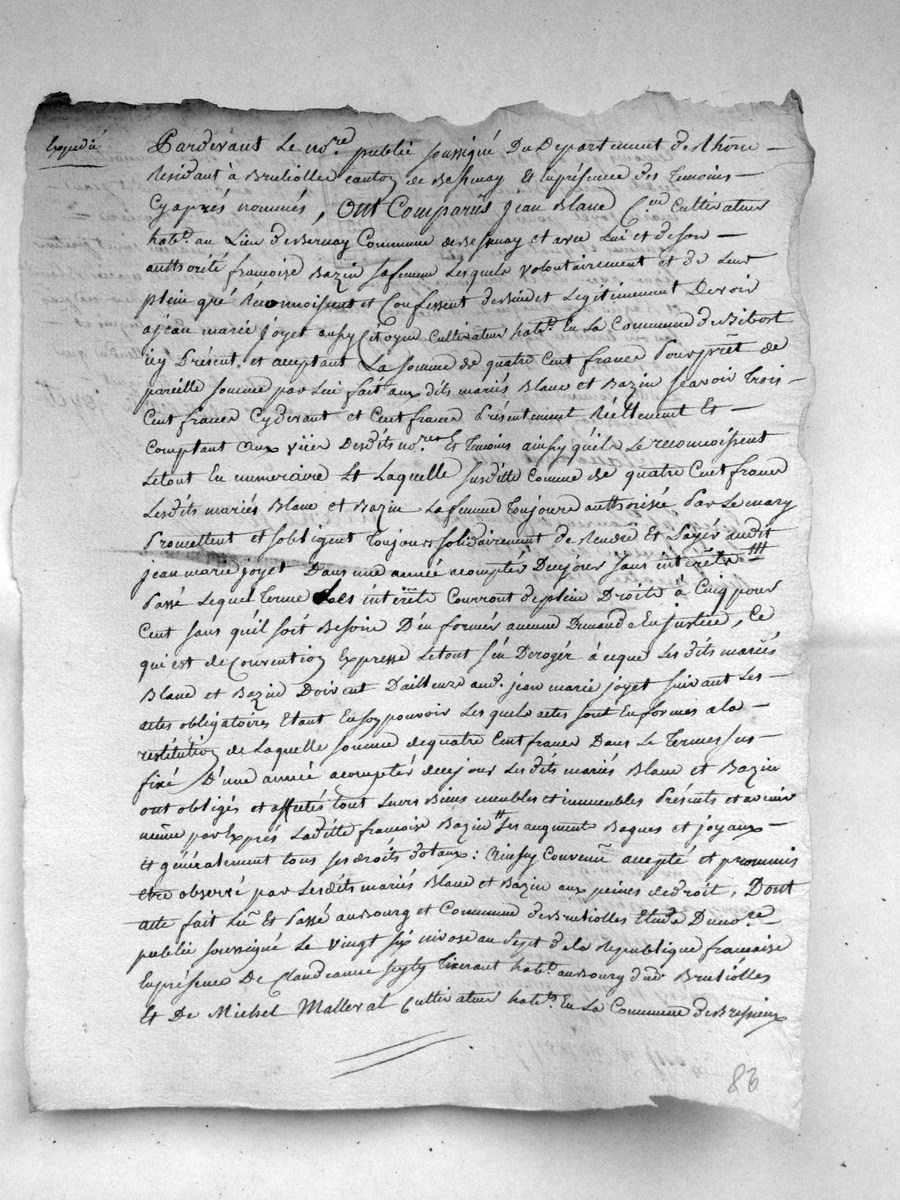 Expedié
Pardevant Le no.re public soussigné Du Departement du Rhône —
Residant à Brulliolles canton de Bessenay Et en présence des Temoins —
Cy après nommés, Ont Comparus jean Blanc C.en Cultivateur
hab.t au Lieu de Bernay Commune de Bessenay et avec Lui et de son —
authorité françoise Bazin sa femme Lesquels volontairement et de Leur
plein gré Reconnoissent et Confessent devoir bien et Legitimement Devoir
a jean marie joyet aussy Citoyen Cultivateur hab.t En La Commune de Bibost
icy Présent et aceptant La somme de quatre Cent francs Pour prêt de
pareille somme par Lui fait aux dits mariés Blanc et Bazin sçavoir Trois
Cent francs Cydevant et Cent francs Présentement Réellement Et —
Comptant aux vües Desdits no.res Et Temoins ainsy qu'ils Le reconnoissent
Letout En numeraire Et Laquelle susditte somme de quatre Cent francs
Lesdits mariés Blanc et Bazin La femme Toujours authorisée Par Le mary
Promettent et sobligent Toujours solidairement de Rendre Et Payer audit
jean marie joyet Dans une année acompter Decejour sans intérêts
Passé Lequel Terme Les intérêts Courront de plein Droits à Cinq pour
Cent sans qu'il soit Besoin D'en former aucune Demande En justice, Ce
qui est de Convention Expresse Letout sen Deroger à ceque Lesdits mariés
Blanc et Bazin Doivent D'ailleurs aud. jean marie joyet suivant Les —
actes obligatoires Etant En son pouvoir Lesquels actes sont En formes a la —
restitution de Laquelle somme de quatre Cent francs Dans Le Termes sus —
fixé D'une année acompter decejour Lesdits mariés Blanc et Bazin
ont obligés et affectés tout Leurs Biens meubles et immeubles Présents et avenir
même par Exprés Laditte françoise Bazin ses augment Bagues et joyaux —
et généralement tous ses droits dotaux: Ainsy Convenu acepté et prommis
etre observé par Lesdits mariés Blanc et Bazin aux peines de droit, Dont
acte fait Lû Et Passé au Bourg et Commune de Brulliolles Etude Du no.re
public soussigné Le vingt six nivose au sept de la République francaise
En présence De Claude anne Tixerant hab.t au Bourg dud. Brulliolles
Et De Michel Malleval Cultivateur hab.t En La Commune de Bressieux
86